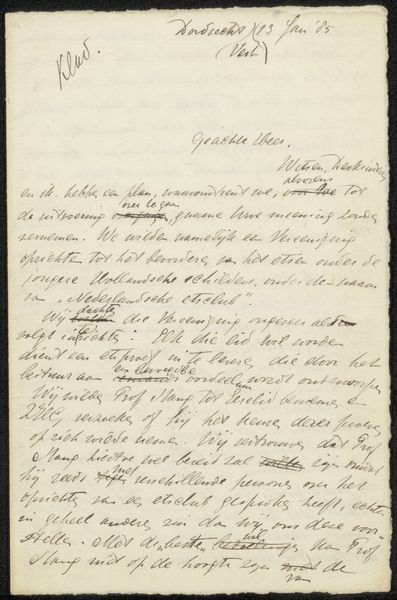 Klad.
Dordrecht 13 Jan '85
Geachte Heer,
Witsen, Derkinderen
en ik hebben een plan, waaromtrent we, alvorens tot
over te gaan
de uitvoering gaarne Uwe meening zouden
vernemen. We wilden namelijk een Vereeniging
oprichten tot het bevorderen van het etsen onder de
jongere Hollandsche schilders, onder den naam
van „Nederlandsche etsclub".
Wij dachten die Vereeniging ongeveer als
volgt in te richten: Elk die lid wil worden
dient een etsproef in te leveren, die door het
bestuur aan een oordeel wordt onderworpen
Wij wilden Prof Stang tot Eerelid benoemen &
ZEG verzoeken of hij het
op zich wilde nemen. Wij vertrouwen dat Prof
Stang hiertoe wel bereid zal zijn omdat
hij reeds met verschillende personen over het
oprichten van een etsclub gesproken heeft, echter
in geheel anderen zin dan wij ons deze voor-
stellen. Met den besten wil kan Prof
Stang niet op de hoogte zijn van de